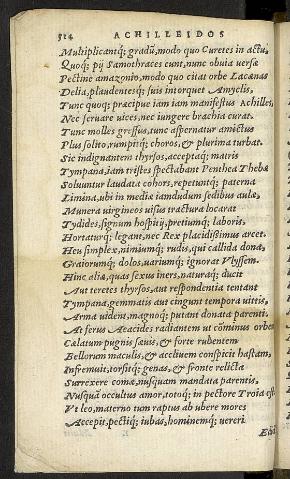 514 ACHILLEIDOS
Multiplicantq; gradū, modo quo Curetes in actu,
Quoq; pij Samothraces eunt, nunc obuia uersæ
Pectine amazonio, modo quo citat orbe Lacænas
Delia, plaudentesq; suis intorquet Amyclis,
Tunc quoq; præcipue iam iam manifestus Achilles,
Nec seruare uices, nec iungere brachia curat.
Tunc molles gressus, tunc aspernatur amictus
Plus solito, rumpitq; choros, & plurima turbat.
Sic indignantem thyrsos, acceptaq; matris
Tympana, iam tristes spectabant Penthea Thebæ
Soluuntur laudata cohors, repetuntq; paterna
Limina, ubi in mediæ iamdudum sedibus aulæ,
Munera uirgineos uisus tractura locarat
Tydides, signum hospitij, pretiumq; laboris.
Hortaturq; legant, nec Rex placidissimus arcet.
Heu simplex, nimiumq; rudis, qui callida dona,
Graiorumq; dolos, uariumq; ignorat Vlyssem.
Hinc aliæ, quas sexus iners, naturaq; ducit
Aut teretes thyrsos, aut respondentia tentant
Tympana, gemmatis aut cingunt tempora uittis,
Arma uident, magnoq; putant donata parenti.
At ferus Aeacides radiantem ut cōminus orbem
Cælatum pugnis sæuis, & forte rubentem
Bellorum maculis, & accliuem conspicit hastam,
Infremuit, torsitq; genas, & fronte relicta
Surrexere comæ, nusquam mandata parentis,
Nusquā occultus amor, totoq; in pectore Troia est
Vt leo, materno tum raptus ab ubere mores
Accepit, pectiq; iubas, hominemq; uereri